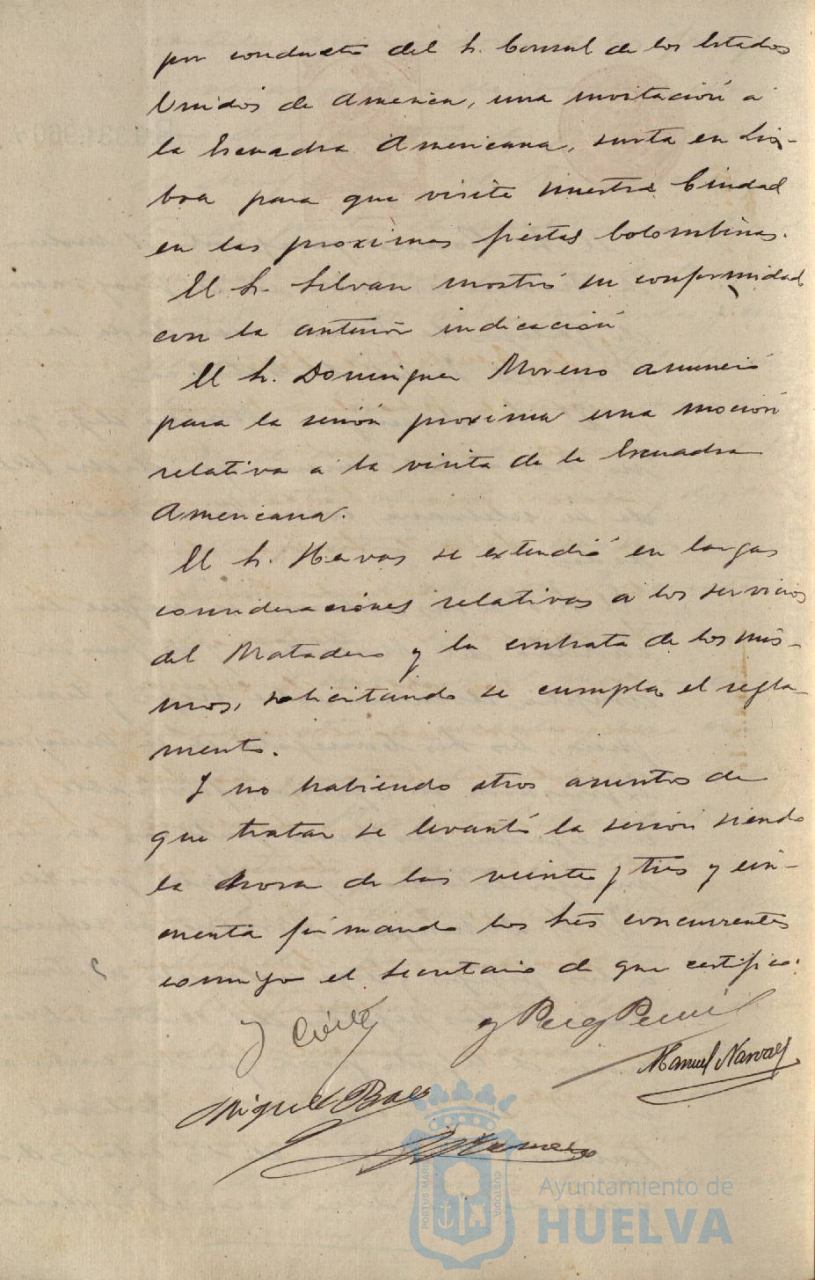 por conducto del Sr. Consul de los Estados
Unidos de America, una invitación á
la Escuadra Americana, surta en Lis-
boa para que visite nuestra Ciudad
en las proximas fiestas Colombinas.
El Sr. Silvan mostró su conformidad
con la anterior indicación
El Sr. Dominguez Moreno anunció
para la sesión proxima una moción
relativa á la visita de la Escuadra
Americana.
El Sr. Hervas se extendió en largas
consideraciones relativas á los servicios
del Matadero y la contrata de los mis-
mos, solicitando se cumpla el regla-
mento.
Y no habiendo otros asuntos de
que tratar se levantó la sesion siendo
la hora de las veinte y tres y cin-
cuenta firmando los Sres concurrentes
conmigo el Secretario de que certifico.
Manuel Narvaez
Miguel Baez
PORTUS MARIS
CUSTODIA
Ayuntamiento de
HUELVA